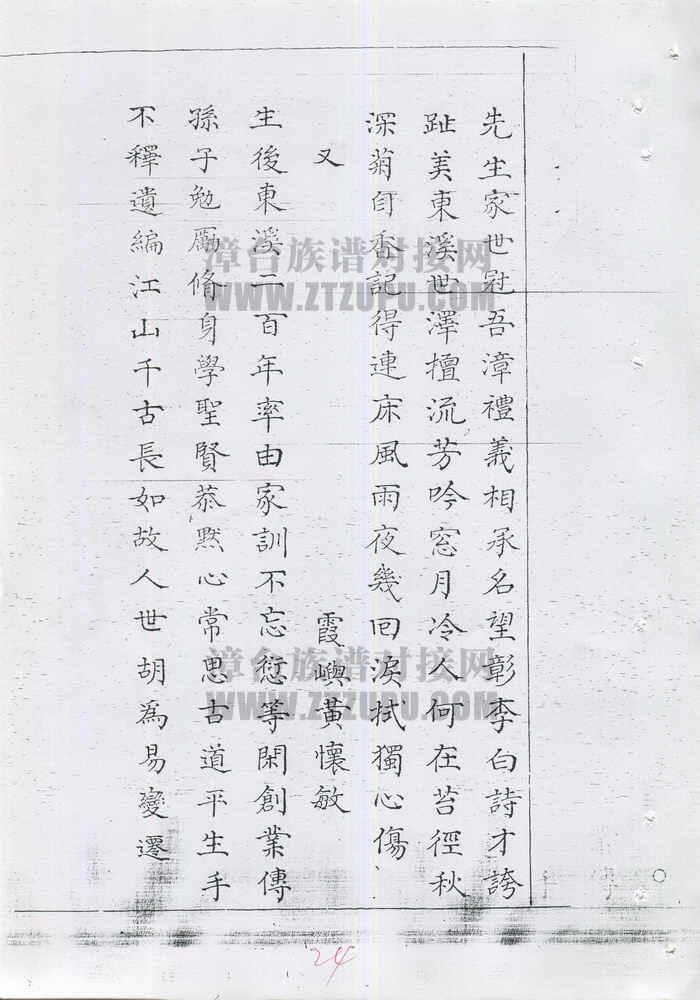 先生家世冠吾漳禮義相承名望彰李白詩才誇
趾美東溪世澤擅流芳吟窓月冷人何在苔徑秋
深菊自香記得連床風雨夜幾回淚拭獨心傷
又
霞嶼黃懷敏
生後東溪二百年率由家訓不忘愆等閑創業傳
孫子勉勵脩身學聖賢恭默心常思古道平生手
不釋遺編江山千古長如故人世胡為易變遷
漳台族谱对接网
WWW.ZTZUPU.COM
漳台族谱对接网
WWW.ZTZUPU.COM
24